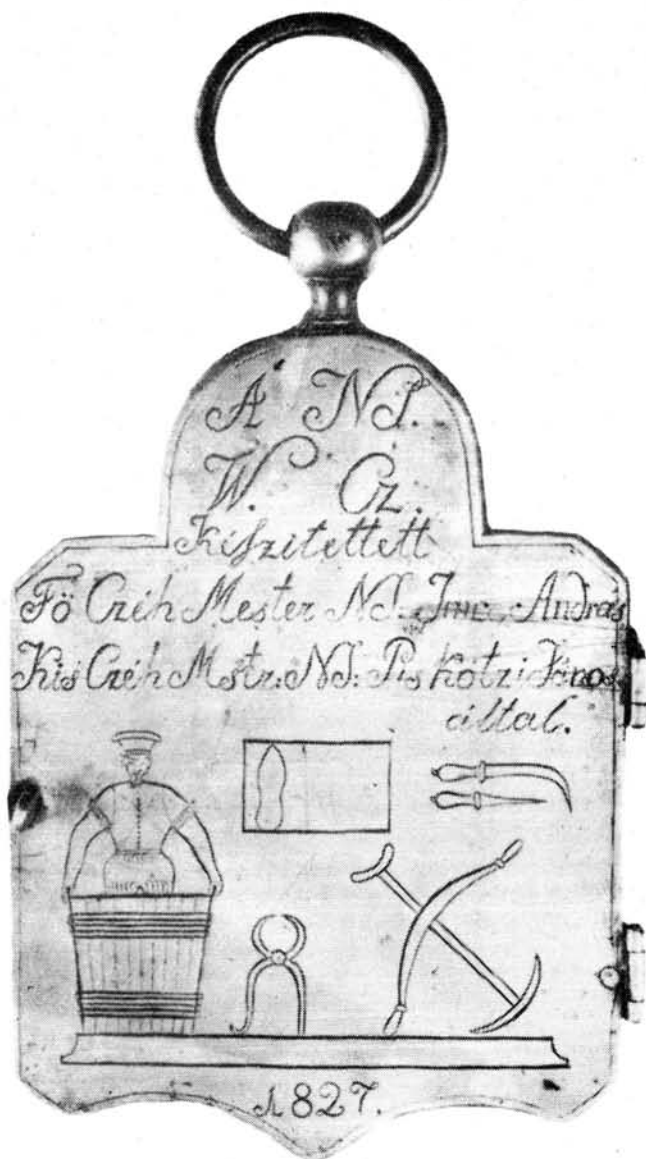 A NS.
W. Cz.
Kiszitettett
Fö Czéh Mester NS: Imre András
Kis Czéh Mstr: NS: Piskótzi János
által.
1827.